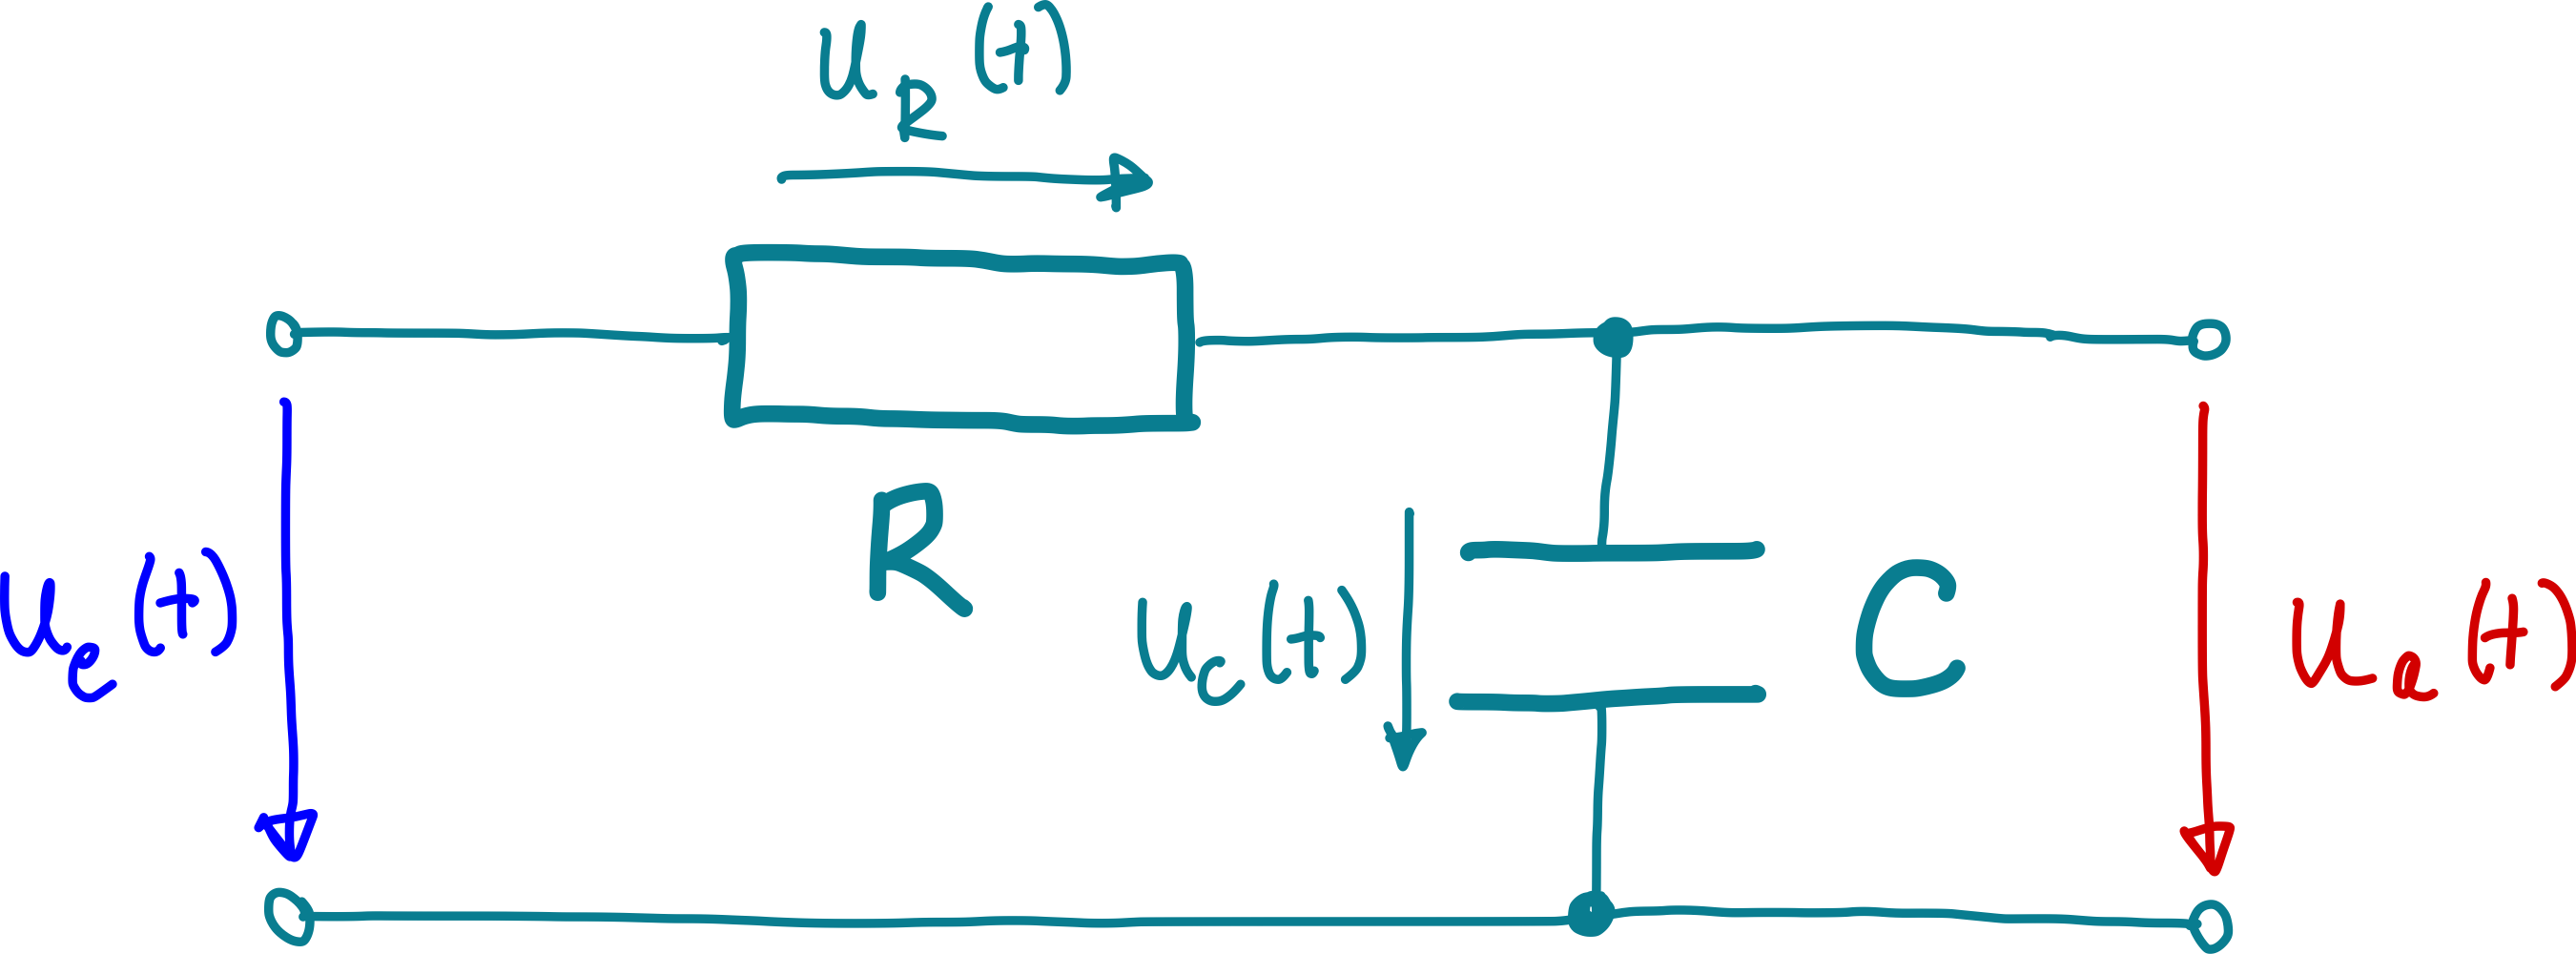 u_R(t)
R
u_e(t)
u_C(t)
C
u_a(t)